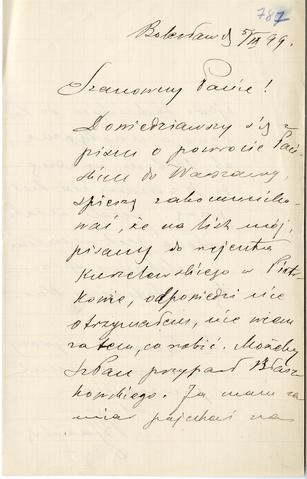 787
Bolesław d 5/IX 99.
Szanowny Panie!
Dowiedziawszy się z
pisma o powrocie Pań-
skim do Warszawy,
spieszę zakomuniko-
wać, że na list mój,
pisany do rejenta
w Piotr-
kowie, odpowiedzi nie
otrzymałem, nie wiem
zatem, co robić. Możeby
Pan przyparł Błasz-
kowskiego. Ja mam za-
miar pojechać na